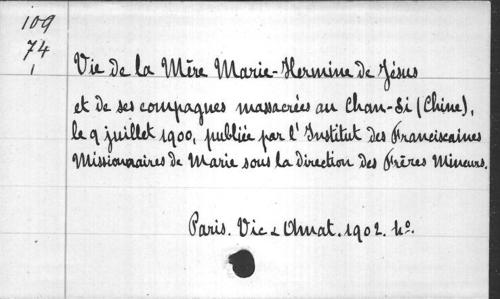 109
74
1
Vie de la Mère Marie-Hermine de Jésus
et de ses compagnes massacrées au Chan-Si (Chine),
le 9 juillet 1900, publiée par l'Institut des Franciscaines
Missionnaires de Marie sous la direction des Frères Mineurs.
Paris. Vic & Amat. 1902. 4º.